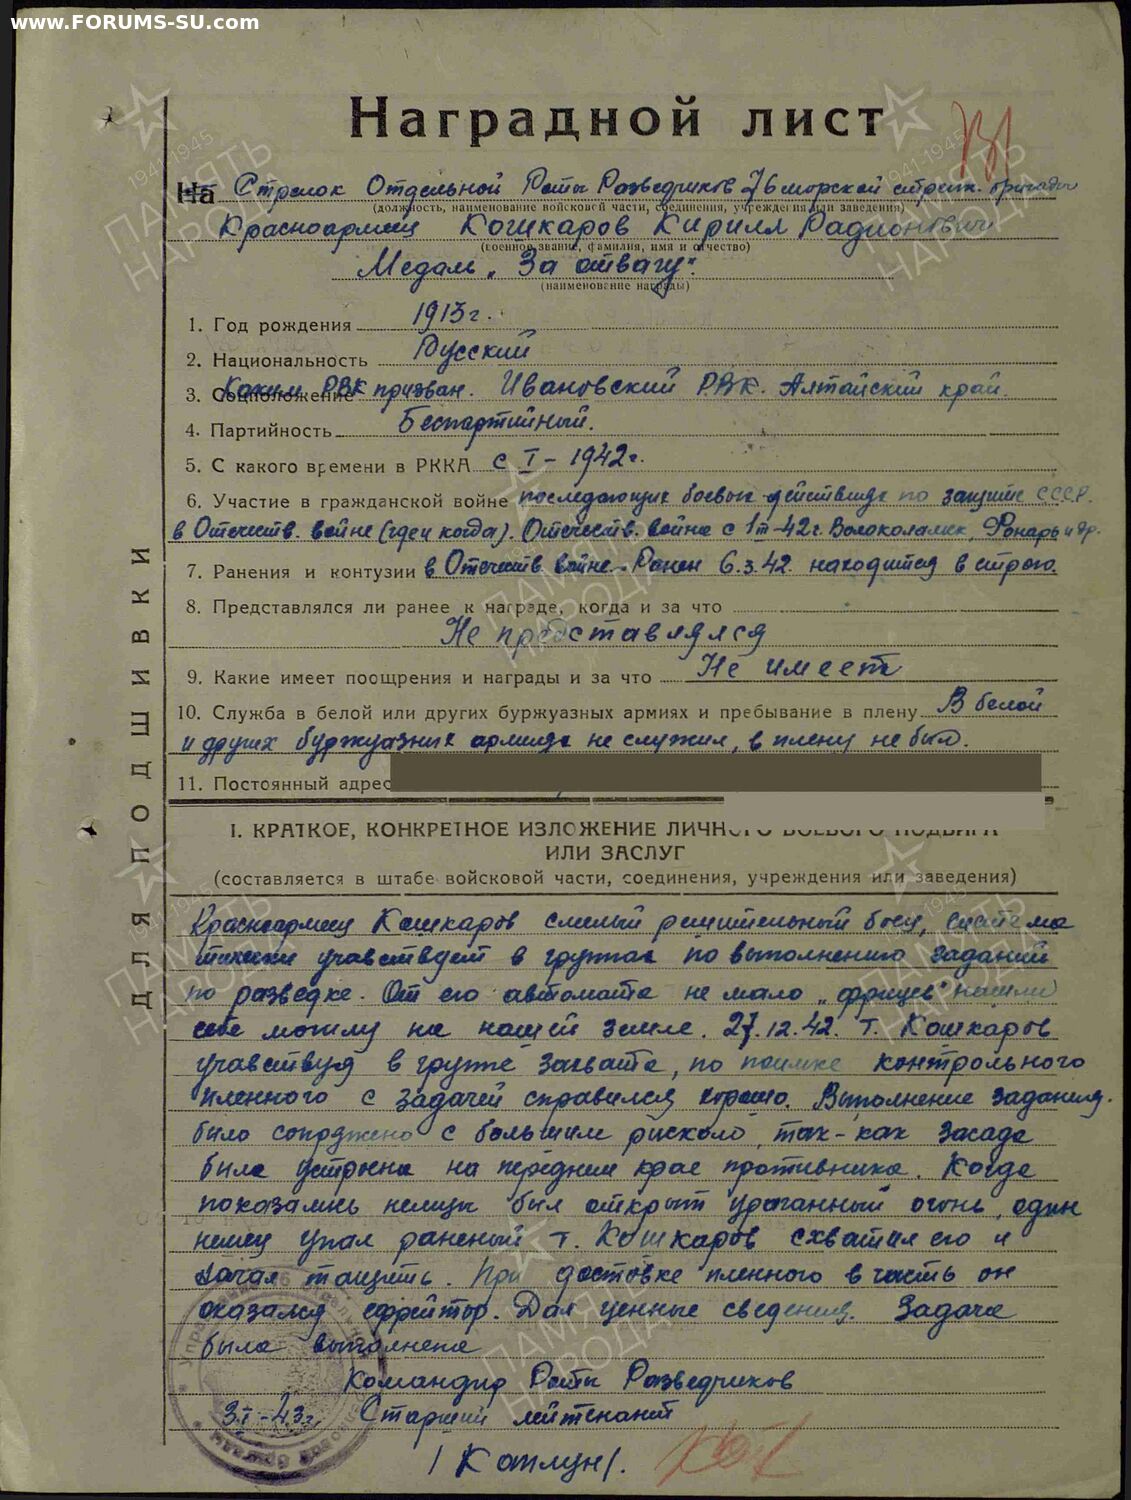 www.FORUMS-SU.com
Наградной лист
На Стрелок Отдельной Роты Разведчиков 76 морской стрелк. бригады
(должность, наименование войсковой части, соединения, учреждения или заведения)
Красноармеец Кошкаров Кирилл Радионович
(военное звание, фамилия, имя и отчество)
Медаль „За отвагу".
(наименование награды)
1. Год рождения 1913 г.
2. Национальность Русский
3. Соцположение Каким РВК призван. Ивановский РВК. Алтайский край.
4. Партийность Беспартийный.
5. С какого времени в РККА с I – 1942 г.
6. Участие в гражданской войне последующих боевых действиях по защите СССР.
в Отечеств. войне (где и когда). Отечеств. война с 1 III-42 г. Волоколамск, Фонарь и др.
7. Ранения и контузии в Отечеств. войне. Ранен 6.3.42. находится в строю.
8. Представлялся ли ранее к награде, когда и за что
Не предоставлялся
9. Какие имеет поощрения и награды и за что Не имеет
10. Служба в белой или других буржуазных армиях и пребывание в плену В белой
и других буржуазных армиях не служил, в плену не был.
11. Постоянный адрес
I. КРАТКОЕ, КОНКРЕТНОЕ ИЗЛОЖЕНИЕ ЛИЧНОГО БОЕВОГО ПОДВИГА
ИЛИ ЗАСЛУГ
(составляется в штабе войсковой части, соединения, учреждения или заведения)
Красноармеец Кошкаров смелый решительный боец, система
тически учавствует в группах по выполнению заданий
по разведке. От его автомата не мало „фрицев" нашли
себе могилу на нашей земле. 27.12.42. т. Кошкаров
учавствуя в группе захвата, по поимке контрольного
пленного с задачей справился хорошо. Выполнение задания
было сопряжено с большим риском, так-как засада
была устроена на переднем крае противника. Когда
показались немцы был открыт ураганный огонь, один
немец упал раненый т. Кошкаров схватил его и
начал тащить. При доставке пленного в часть он
оказался ефрейтор. Дал ценные сведения. Задача
была выполнена
Командир Роты Разведчиков
3 I – 43 г. Старший лейтенант
/ Катлун /.
ДЛЯ ПОДШИВКИ
ПАМЯТЬ НАРОДА
1941-1945